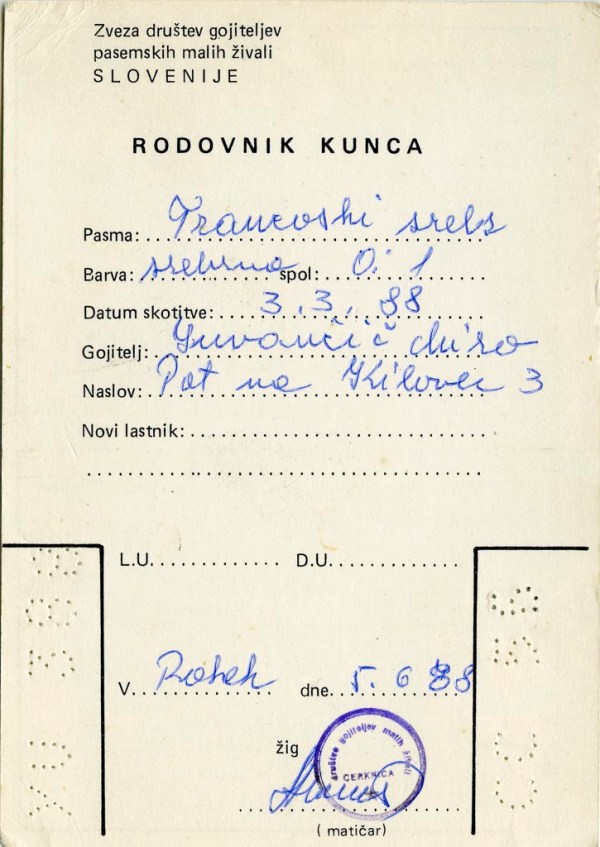 Zveza društev gojiteljev
pasemskih malih živali
SLOVENIJE
RODOVNIK KUNCA
Pasma: Francoski srebs
Barva: srebrna spol: 0:1
Datum skotitve: 3.3.88
Gojitelj: Miro
Naslov: Pot na Kilovec 3
Novi lastnik:
L.U. D.U.
V. Rakek dne. 5.6 88
žig
društvo gojiteljev malih živali
CERKNICA
(matičar)